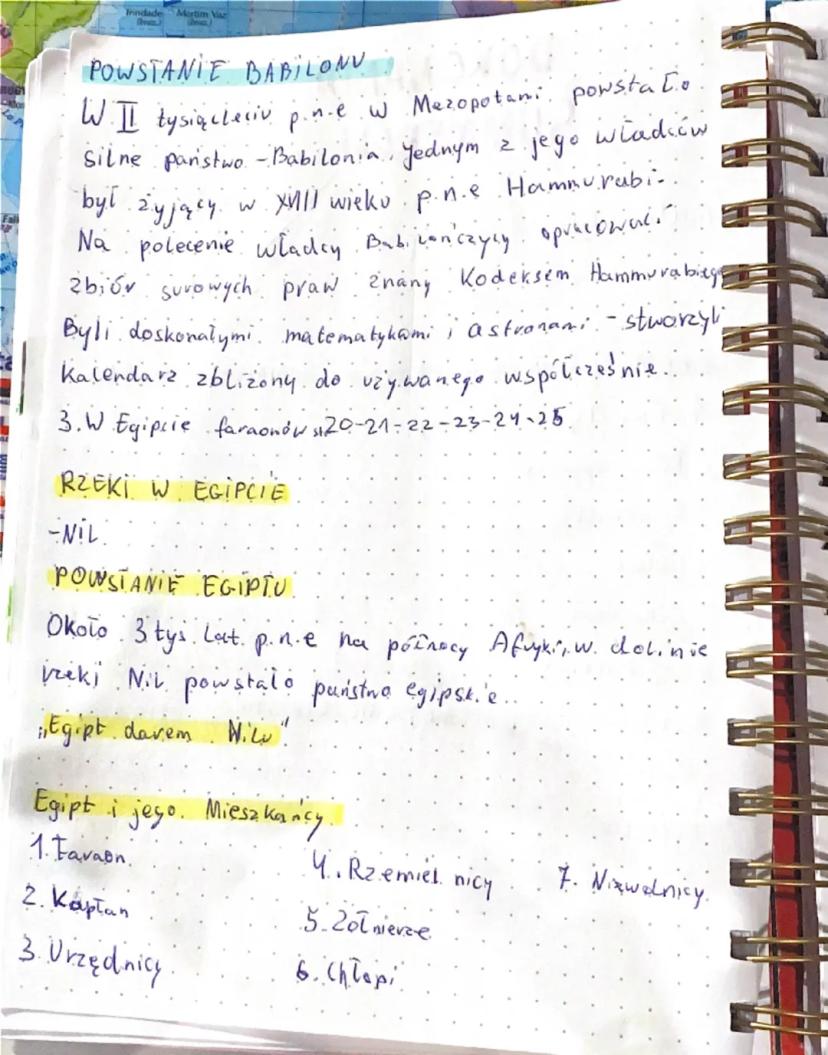 Trindade
Martim Vaz
POWSTANIE BABILONU
W II tysiącleciu p.n.e w Mezopotami powstało
silne państwo - Babilonia. Jednym z jego władców
był żyjący w XVIII wieku p.n.e Hammurabi.
Na polecenie władcy Babilończycy opracowali
zbiór surowych praw znany Kodeksem Hammurabiego
Byli doskonałymi matematykami i astronami - stworzyli
Kalendarz zbliżony do używanego współcześnie.
3. W Egipcie faraonów s.20-21-22-23-24-25
RZEKI W EGIPCIE
-NIL
POWSTANIE EGIPTU
Około 3 tys lat p.n.e na północy Afryki, w dolinie
rzeki Nil powstało państwo egipskie.
„Egipt darem Nilu"
Egipt i jego Mieszkańcy
1. Faraon
4. Rzemieślnicy
7. Niewolnicy
2. Kapłan
5. Żołnierze
3. Urzędnicy
6. Chłopi